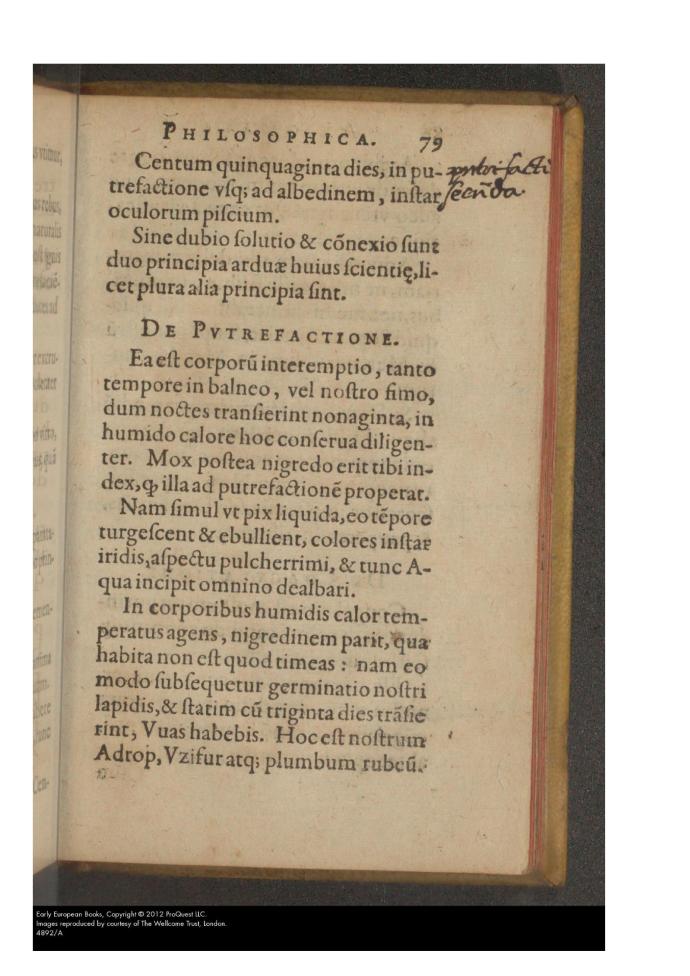 PHILOSOPHICA. 79
Centum quinquaginta dies, in pu-
trefactione vſq; ad albedinem, inſtar
oculorum piſcium.
Sine dubio ſolutio & cõnexio ſunt
duo principia arduæ huius ſcientię, li-
cet plura alia principia ſint.
DE PVTREFACTIONE.
Ea eſt corporũ interemptio, tanto
tempore in balneo, vel noſtro fimo,
dum noctes tranſierint nonaginta, in
humido calore hoc conſerua diligen-
ter. Mox poſtea nigredo erit tibi in-
dex, ꝙ illa ad putrefactionẽ properat.
Nam ſimul vt pix liquida, eo tẽpore
turgeſcent & ebullient, colores inſtar
iridis, aſpectu pulcherrimi, & tunc A-
qua incipit omnino dealbari.
In corporibus humidis calor tem-
peratus agens, nigredinem parit, qua
habita non eſt quod timeas : nam eo
modo ſubſequetur germinatio noſtri
lapidis, & ſtatim cũ triginta dies trãſie
rint, Vuas habebis. Hoc eſt noſtrum
Adrop, Vzifur atq; plumbum rubeũ.
Early European Books, Copyright © 2012 ProQuest LLC.
Images reproduced by courtesy of The Wellcome Trust, London.
4892/A